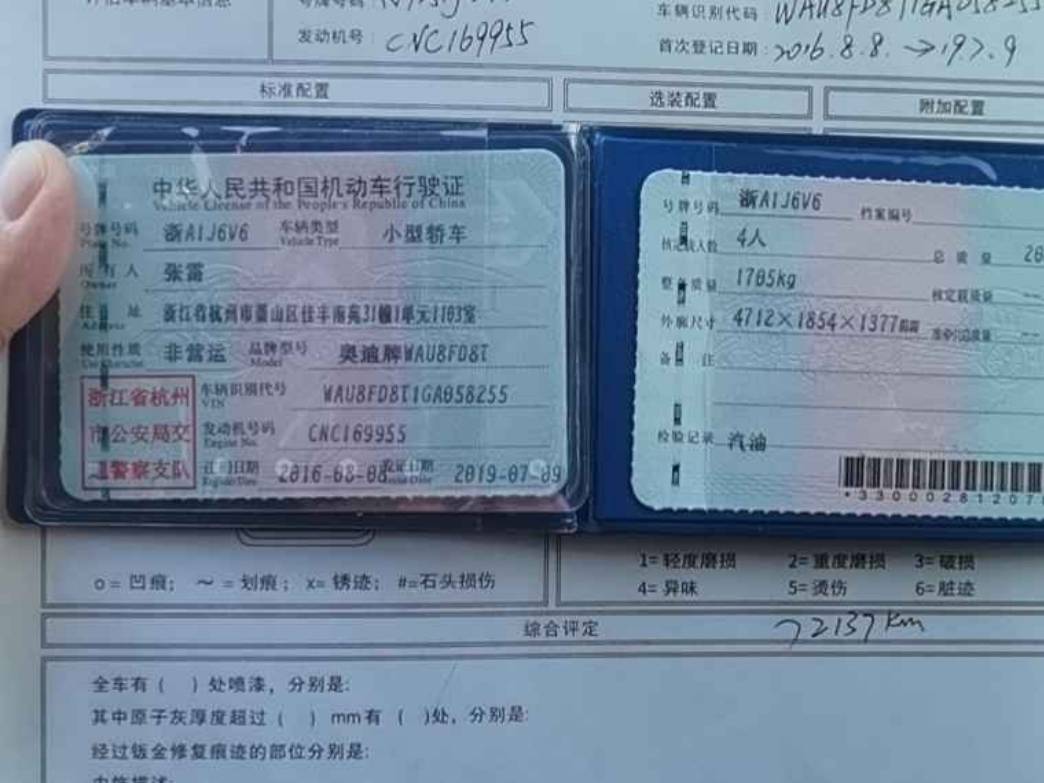 发动机号: CNC169955
车辆识别代码: WAU8FD8T1GA058255
首次登记日期: 2016.8.8. → 19.7.9
标准配置
选装配置
附加配置
中华人民共和国机动车行驶证
Vehicle License of the People's Republic of China
号牌号码 浙A1J6V6 车辆类型 小型轿车
Plate No. Vehicle Type
所有人 张雷
Owner
住址 浙江省杭州市萧山区佳丰南苑31幢1单元1103室
Address
使用性质 非营运 品牌型号 奥迪牌WAU8FD8T
Use Character Model
浙江省杭州
市公安局交
通警察支队
车辆识别代号 WAU8FD8T1GA058255
VIN
发动机号码 CNC169955
Engine No.
注册日期 2016-08-08 发证日期 2019-07-09
Register Date Issue Date
号牌号码 浙A1J6V6 档案编号
核定载人数 4人 总质量
整备质量 1705kg 核定载质量 --
外廓尺寸 4712×1854×1377mm --
备注
检验记录 汽油
o= 凹痕; ～ = 划痕; x= 锈迹; #=石头损伤
1= 轻度磨损 2= 重度磨损 3= 破损
4= 异味 5= 烫伤 6= 脏迹
综合评定 72137km
全车有 ( ) 处喷漆，分别是:
其中原子灰厚度超过 ( ) mm有 ( )处，分别是:
经过钣金修复痕迹的部位分别是: